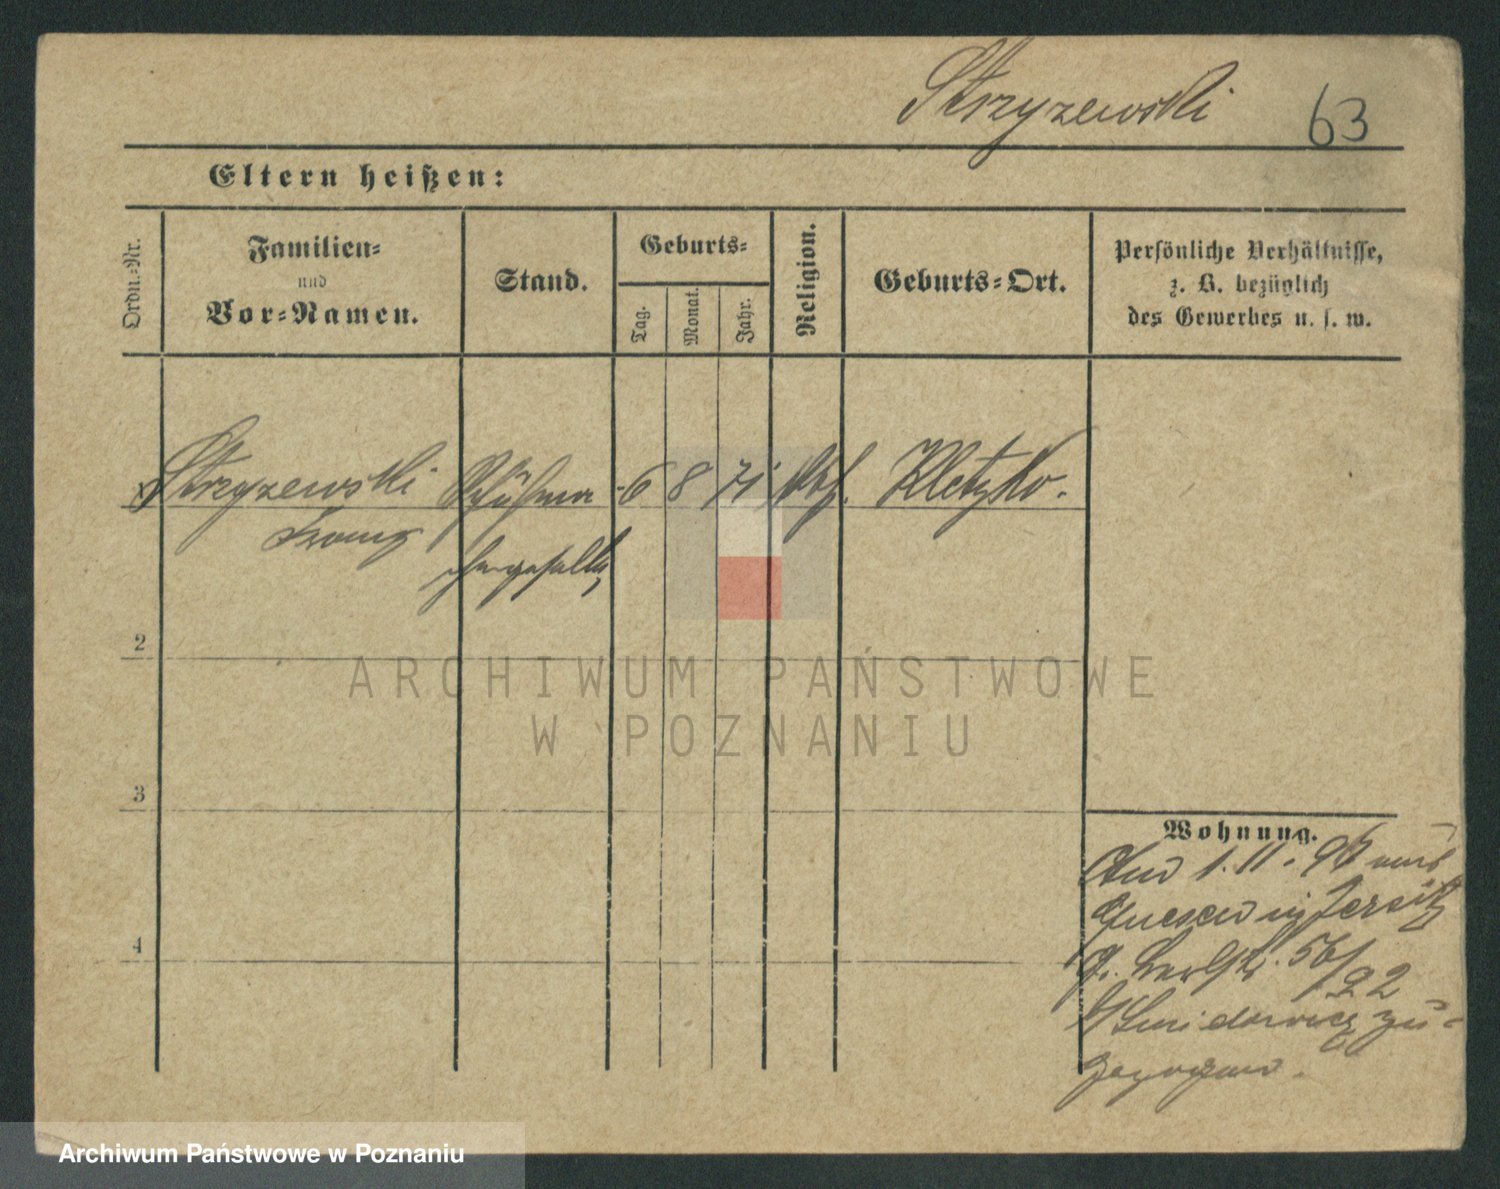 Strzyzewski
63
Eltern heißen:
Ordn.-Nr.
Familien-
und
Vor-Namen.
Stand.
Geburts-
Tag.
Monat.
Jahr.
Religion.
Geburts-Ort.
Persönliche Verhältnisse,
z. B. bezüglich
des Gewerbes u. s. w.
Strzyzewski
Franz
Schuhma
chergeselle
6 8 71 kth. Kletzko.
2
3
4
Wohnung.
Am 1. 11. 96 aus
Gnesen in Jersitz
Gr. Berlstr. 56/
92
zu-
gezogen.
ARCHIWUM PAŃSTWOWE
W POZNANIU
Archiwum Państwowe w Poznaniu